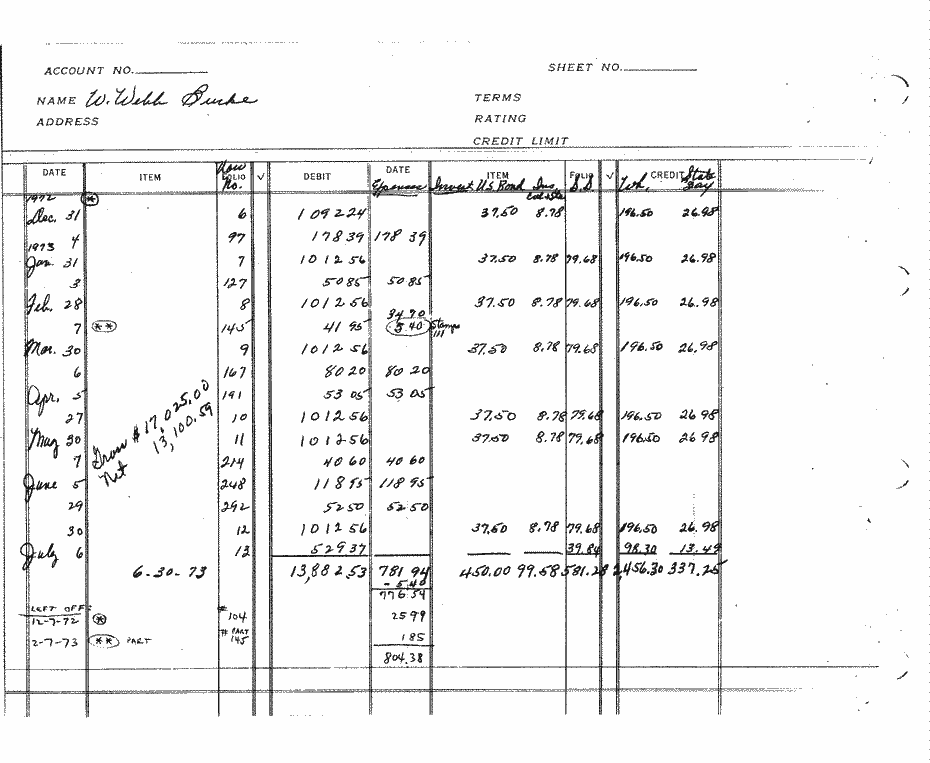 ACCOUNT NO. SHEET NO.
NAME W. Webb Burke TERMS
ADDRESS RATING
CREDIT LIMIT
DATE ITEM FOLIO No. √ DEBIT DATE Expenses ITEM Invest U.S. Bond Ins FOLIO S.S √ Wh. CREDIT State Tax
1972 *
Dec. 31 6 1 092 24 37.50 8.78 196.50 26.98
1973 4 97 178 39 178 39
Jan. 31 7 1 012 56 37.50 8.78 79.68 196.50 26.98
3 127 50 85 50 85
Feb. 28 8 1 012 56 37.50 8.78 79.68 196.50 26.98
34 70
7 ** 145 41 95 5 40 Stamps
Mar. 30 9 1 012 56 37.50 8.78 79.68 196.50 26.98
6 167 80 20 80 20
Apr. 5 191 53 05 53 05
27 10 1 012 56 37.50 8.78 79.68 196.50 26.98
May 30 11 1 012 56 37.50 8.78 79.68 196.50 26 98
7 214 40 60 40 60
June 5 248 118 95 118 95
29 292 52 50 52 50
30 12 1 012 56 37.50 8.78 79.68 196.50 26.98
July 6 13 529 37 39.84 98.30 13.49
Gross $17,025.00
Net 13,100.59
6-30-73 13,882 53 781 94 450.00 99.58 581.28 2,456.30 337.25
- 5.40
776.54
LEFT OFF:
12-7-72 * # 104 25 99
2-7-73 ** PART # PART 145 1 85
804.38